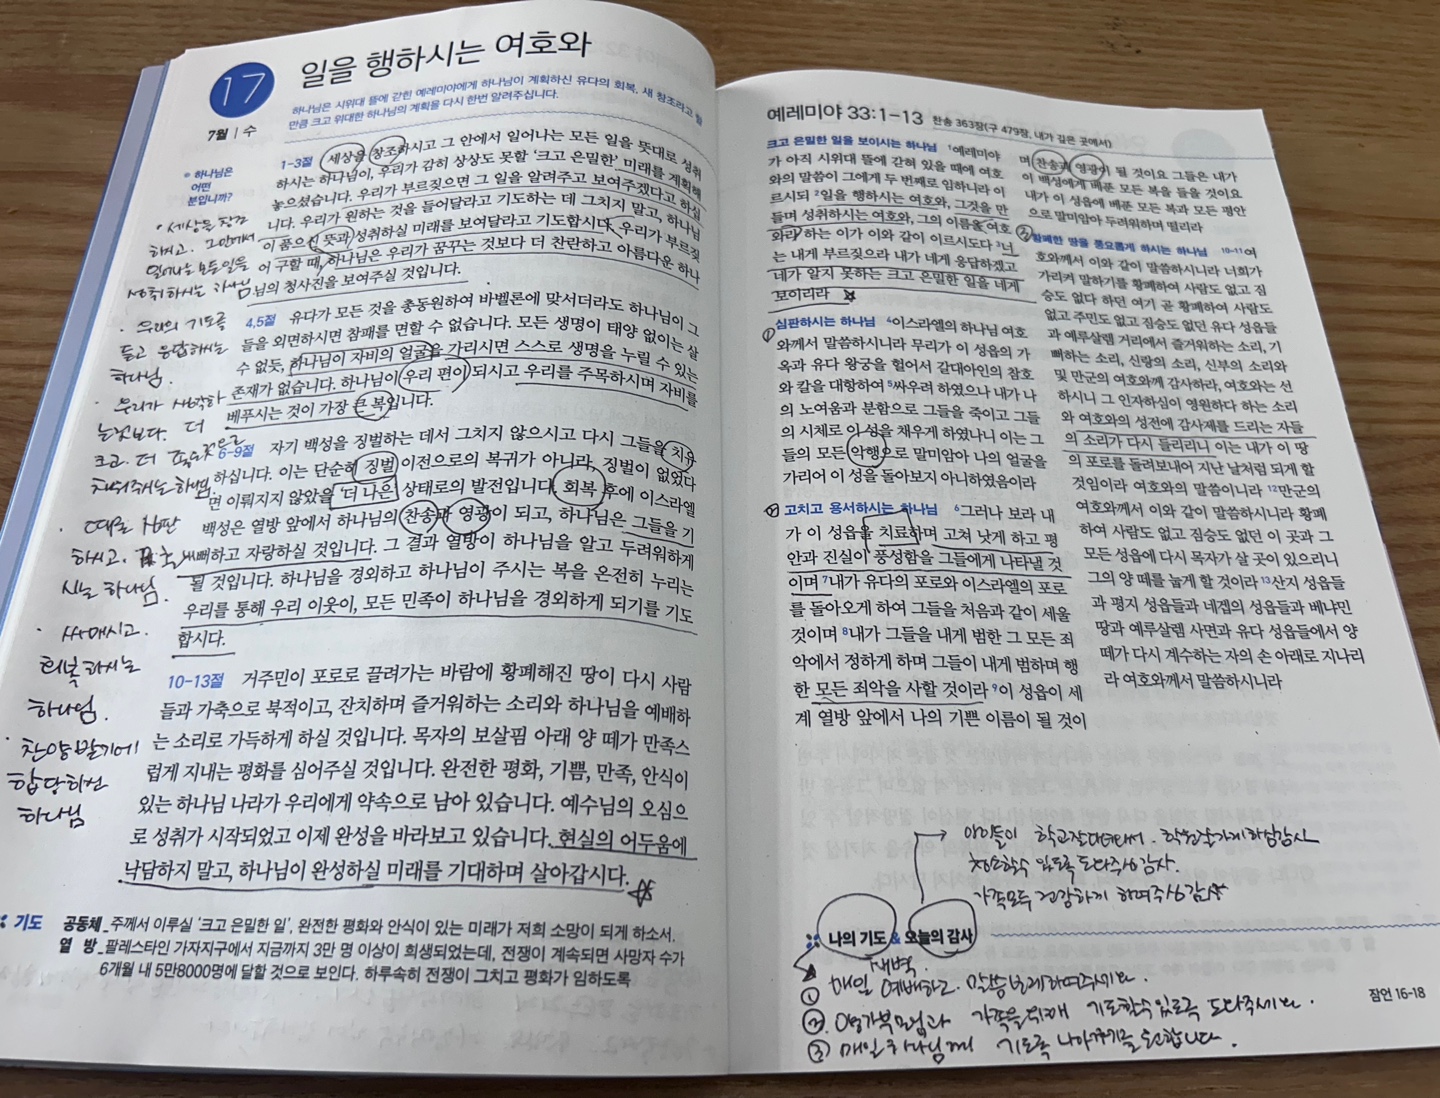 17
7월 | 수
일을 행하시는 여호와
하나님은 시위대 뜰에 갇힌 예레미야에게 하나님이 계획하신 유다의 회복, 새 창조라고 할
만큼 크고 위대한 하나님의 계획을 다시 한번 알려주십니다.
하나님은
어떤
분입니까?
1-3절 세상을 창조하시고 그 안에서 일어나는 모든 일을 뜻대로 성취
하시는 하나님이, 우리가 감히 상상도 못할 '크고 은밀한' 미래를 계획해
놓으셨습니다. 우리가 부르짖으면 그 일을 알려주고 보여주겠다고 하십
니다. 우리가 원하는 것을 들어달라고 기도하는 데 그치지 말고, 하나님
이 품으신 뜻과 성취하실 미래를 보여달라고 기도합시다. 우리가 부르짖
어 구할 때, 하나님은 우리가 꿈꾸는 것보다 더 찬란하고 아름다운 하나
님의 청사진을 보여주실 것입니다.
4,5절 유다가 모든 것을 총동원하여 바벨론에 맞서더라도 하나님이 그
들을 외면하시면 참패를 면할 수 없습니다. 모든 생명이 태양 없이는 살
수 없듯, 하나님이 자비의 얼굴을 가리시면 스스로 생명을 누릴 수 있는
존재가 없습니다. 하나님이 우리 편이 되시고 우리를 주목하시며 자비를
베푸시는 것이 가장 큰 복입니다.
6-9절 자기 백성을 징벌하는 데서 그치지 않으시고 다시 그들을 치유
하십니다. 이는 단순히 징벌 이전으로의 복귀가 아니라, 징벌이 없었다
면 이뤄지지 않았을 '더 나은' 상태로의 발전입니다. 회복 후에 이스라엘
백성은 열방 앞에서 하나님의 찬송과 영광이 되고, 하나님은 그들을 기
뻐하고 자랑하실 것입니다. 그 결과 열방이 하나님을 알고 두려워하게
될 것입니다. 하나님을 경외하고 하나님이 주시는 복을 온전히 누리는
우리를 통해 우리 이웃이, 모든 민족이 하나님을 경외하게 되기를 기도
합시다.
10-13절 거주민이 포로로 끌려가는 바람에 황폐해진 땅이 다시 사람
들과 가축으로 북적이고, 잔치하며 즐거워하는 소리와 하나님을 예배하
는 소리로 가득하게 하실 것입니다. 목자의 보살핌 아래 양 떼가 만족스
럽게 지내는 평화를 심어주실 것입니다. 완전한 평화, 기쁨, 만족, 안식이
있는 하나님 나라가 우리에게 약속으로 남아 있습니다. 예수님의 오심으
로 성취가 시작되었고 이제 완성을 바라보고 있습니다. 현실의 어두움에
낙담하지 말고, 하나님이 완성하실 미래를 기대하며 살아갑시다.
· 세상을 창조
하시고. 그안에서
일어나는 모든일을
성취하시는 하나님
· 우리의 기도를
듣고 응답하시는
하나님.
· 우리가 생각하
는것보다. 더
크고. 더
하나님
· 때로 심판
하시고.
하나님.
· 싸매시고.
회복하시는
하나님.
· 찬양받기에
합당하신
하나님
기도 공동체_주께서 이루실 '크고 은밀한 일', 완전한 평화와 안식이 있는 미래가 저희 소망이 되게 하소서.
열 방_팔레스타인 가자지구에서 지금까지 3만 명 이상이 희생되었는데, 전쟁이 계속되면 사망자 수가
6개월 내 5만8000명에 달할 것으로 보인다. 하루속히 전쟁이 그치고 평화가 임하도록
예레미야 33:1-13 찬송 363장(구 479장, 내가 깊은 곳에서)
크고 은밀한 일을 보이시는 하나님 1예레미야
가 아직 시위대 뜰에 갇혀 있을 때에 여호
와의 말씀이 그에게 두 번째로 임하니라 이
르시되 2일을 행하시는 여호와, 그것을 만
들며 성취하시는 여호와, 그의 이름을 여호
와라 하는 이가 이와 같이 이르시도다 3너
는 내게 부르짖으라 내가 네게 응답하겠고
네가 알지 못하는 크고 은밀한 일을 네게
보이리라
① 심판하시는 하나님 4이스라엘의 하나님 여호
와께서 말씀하시니라 무리가 이 성읍의 가
옥과 유다 왕궁을 헐어서 갈대아인의 참호
와 칼을 대항하여 5싸우려 하였으나 내가 나
의 노여움과 분함으로 그들을 죽이고 그들
의 시체로 이 성을 채우게 하였나니 이는 그
들의 모든 악행으로 말미암아 나의 얼굴을
가리어 이 성을 돌아보지 아니하였음이라
② 고치고 용서하시는 하나님 6그러나 보라 내
가 이 성읍을 치료하며 고쳐 낫게 하고 평
안과 진실이 풍성함을 그들에게 나타낼 것
이며 7내가 유다의 포로와 이스라엘의 포로
를 돌아오게 하여 그들을 처음과 같이 세울
것이며 8내가 그들을 내게 범한 그 모든 죄
악에서 정하게 하며 그들이 내게 범하며 행
한 모든 죄악을 사할 것이라 9이 성읍이 세
계 열방 앞에서 나의 기쁜 이름이 될 것이
며 찬송과 영광이 될 것이요 그들은 내가
이 백성에게 베푼 모든 복을 들을 것이요
내가 이 성읍에 베푼 모든 복과 모든 평안
으로 말미암아 두려워하며 떨리라
③ 황폐한 땅을 풍요롭게 하시는 하나님 10-11여
호와께서 이와 같이 말씀하시니라 너희가
가리켜 말하기를 황폐하여 사람도 없고 짐
승도 없다 하던 여기 곧 황폐하여 사람도
없고 주민도 없고 짐승도 없던 유다 성읍들
과 예루살렘 거리에서 즐거워하는 소리, 기
뻐하는 소리, 신랑의 소리, 신부의 소리와
및 만군의 여호와께 감사하라, 여호와는 선
하시니 그 인자하심이 영원하다 하는 소리
와 여호와의 성전에 감사제를 드리는 자들
의 소리가 다시 들리리니 이는 내가 이 땅
의 포로를 돌려보내어 지난 날처럼 되게 할
것임이라 여호와의 말씀이니라 12만군의
여호와께서 이와 같이 말씀하시니라 황폐
하여 사람도 없고 짐승도 없던 이 곳과 그
모든 성읍에 다시 목자가 살 곳이 있으리니
그의 양 떼를 눕게 할 것이라 13산지 성읍들
과 평지 성읍들과 네겝의 성읍들과 베냐민
땅과 예루살렘 사면과 유다 성읍들에서 양
떼가 다시 계수하는 자의 손 아래로 지나리
라 여호와께서 말씀하시니라
아이들이 학교잘다녀와서.
있도록 도와주심 감사.
가족모두 건강하게 하여주심 감사
나의 기도 & 오늘의 감사
새벽
① 매일 예배하고. 말씀보게하여주세요.
② 가족을위해 기도할수있도록 도와주세요.
③ 매일 하나님께 기도로 나아가기를 소망합니다.
잠언 16-18